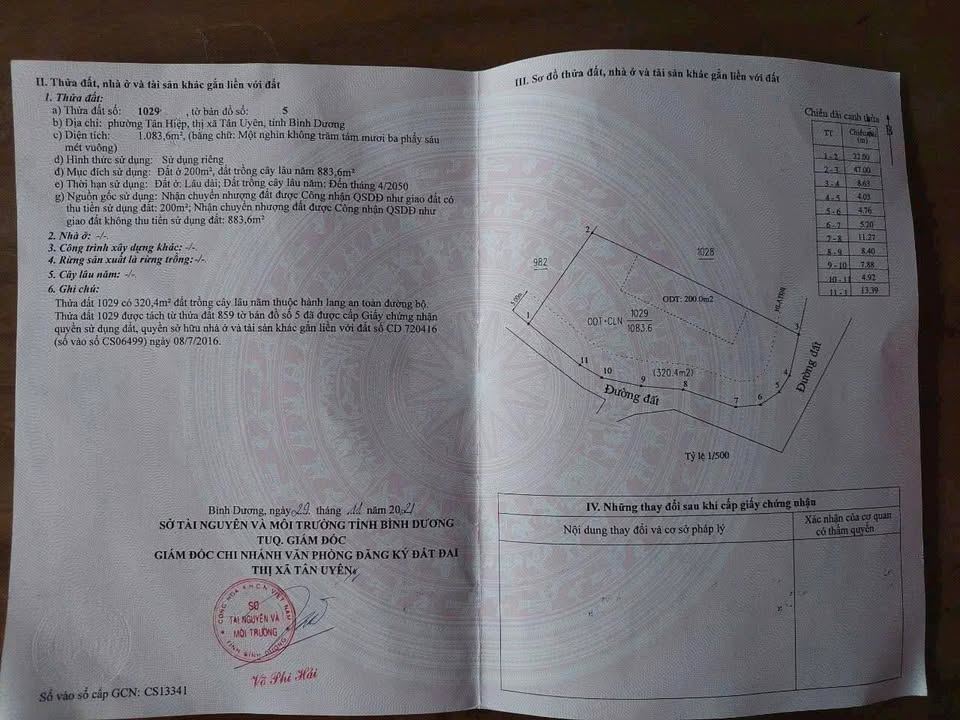 II. Thửa đất, nhà ở và tài sản khác gắn liền với đất
1. Thửa đất:
a) Thửa đất số: 1029 , tờ bản đồ số: 5
b) Địa chỉ: phường Tân Hiệp, thị xã Tân Uyên, tỉnh Bình Dương
c) Diện tích: 1.083,6m², (bằng chữ: Một nghìn không trăm tám mươi ba phẩy sáu
mét vuông)
d) Hình thức sử dụng: Sử dụng riêng
đ) Mục đích sử dụng: Đất ở 200m², đất trồng cây lâu năm 883,6m²
e) Thời hạn sử dụng: Đất ở: Lâu dài; Đất trồng cây lâu năm; Đến tháng 4/2050
g) Nguồn gốc sử dụng: Nhận chuyển nhượng đất được Công nhận QSDĐ như giao đất có
thu tiền sử dụng đất: 200m²; Nhận chuyển nhượng đất được Công nhận QSDĐ như
giao đất không thu tiền sử dụng đất: 883,6m²
2. Nhà ở: -/-
3. Công trình xây dựng khác: -/-
4. Rừng sản xuất là rừng trồng:-/-
5. Cây lâu năm: -/-
6. Ghi chú:
Thửa đất 1029 có 320,4m² đất trồng cây lâu năm thuộc hành lang an toàn đường bộ.
Thửa đất 1029 được tách từ thửa đất 859 tờ bản đồ số 5 đã được cấp Giấy chứng nhận
quyền sử dụng đất, quyền sở hữu nhà ở và tài sản khác gắn liền với đất số CD 720416
(số vào sổ CS06499) ngày 08/7/2016.
Bình Dương, ngày 29 tháng 11 năm 2021
SỞ TÀI NGUYÊN VÀ MÔI TRƯỜNG TỈNH BÌNH DƯƠNG
TUQ. GIÁM ĐỐC
GIÁM ĐỐC CHI NHÁNH VĂN PHÒNG ĐĂNG KÝ ĐẤT ĐAI
THỊ XÃ TÂN UYÊN
CỘNG HÒA X.H.C.N VIỆT NAM
SỞ
TÀI NGUYÊN VÀ
MÔI TRƯỜNG
TỈNH BÌNH DƯƠNG
Võ Phi Hải
Số vào sổ cấp GCN: CS13341
III. Sơ đồ thửa đất, nhà ở và tài sản khác gắn liền với đất
Chiều dài cạnh thửa
B
TT Chiều dài
(m)
1 - 2 22.60
2 - 3 47.00
3 - 4 8.63
4 - 5 4.03
5 - 6 4.76
6 - 7 5.20
7 - 8 11.27
8 - 9 8.40
9 - 10 7.88
10 - 11 4.92
11 - 1 13.39
2
982
1028
ODT: 200.0m2
HLATĐB
1
1029
ODT+CLN
1083.6
3
11
10
(320.4m2)
4
9
8
5
7
6
Đường đất
Đường đất
Tỷ lệ 1/500
IV. Những thay đổi sau khi cấp giấy chứng nhận
Nội dung thay đổi và cơ sở pháp lý
Xác nhận của cơ quan
có thẩm quyền